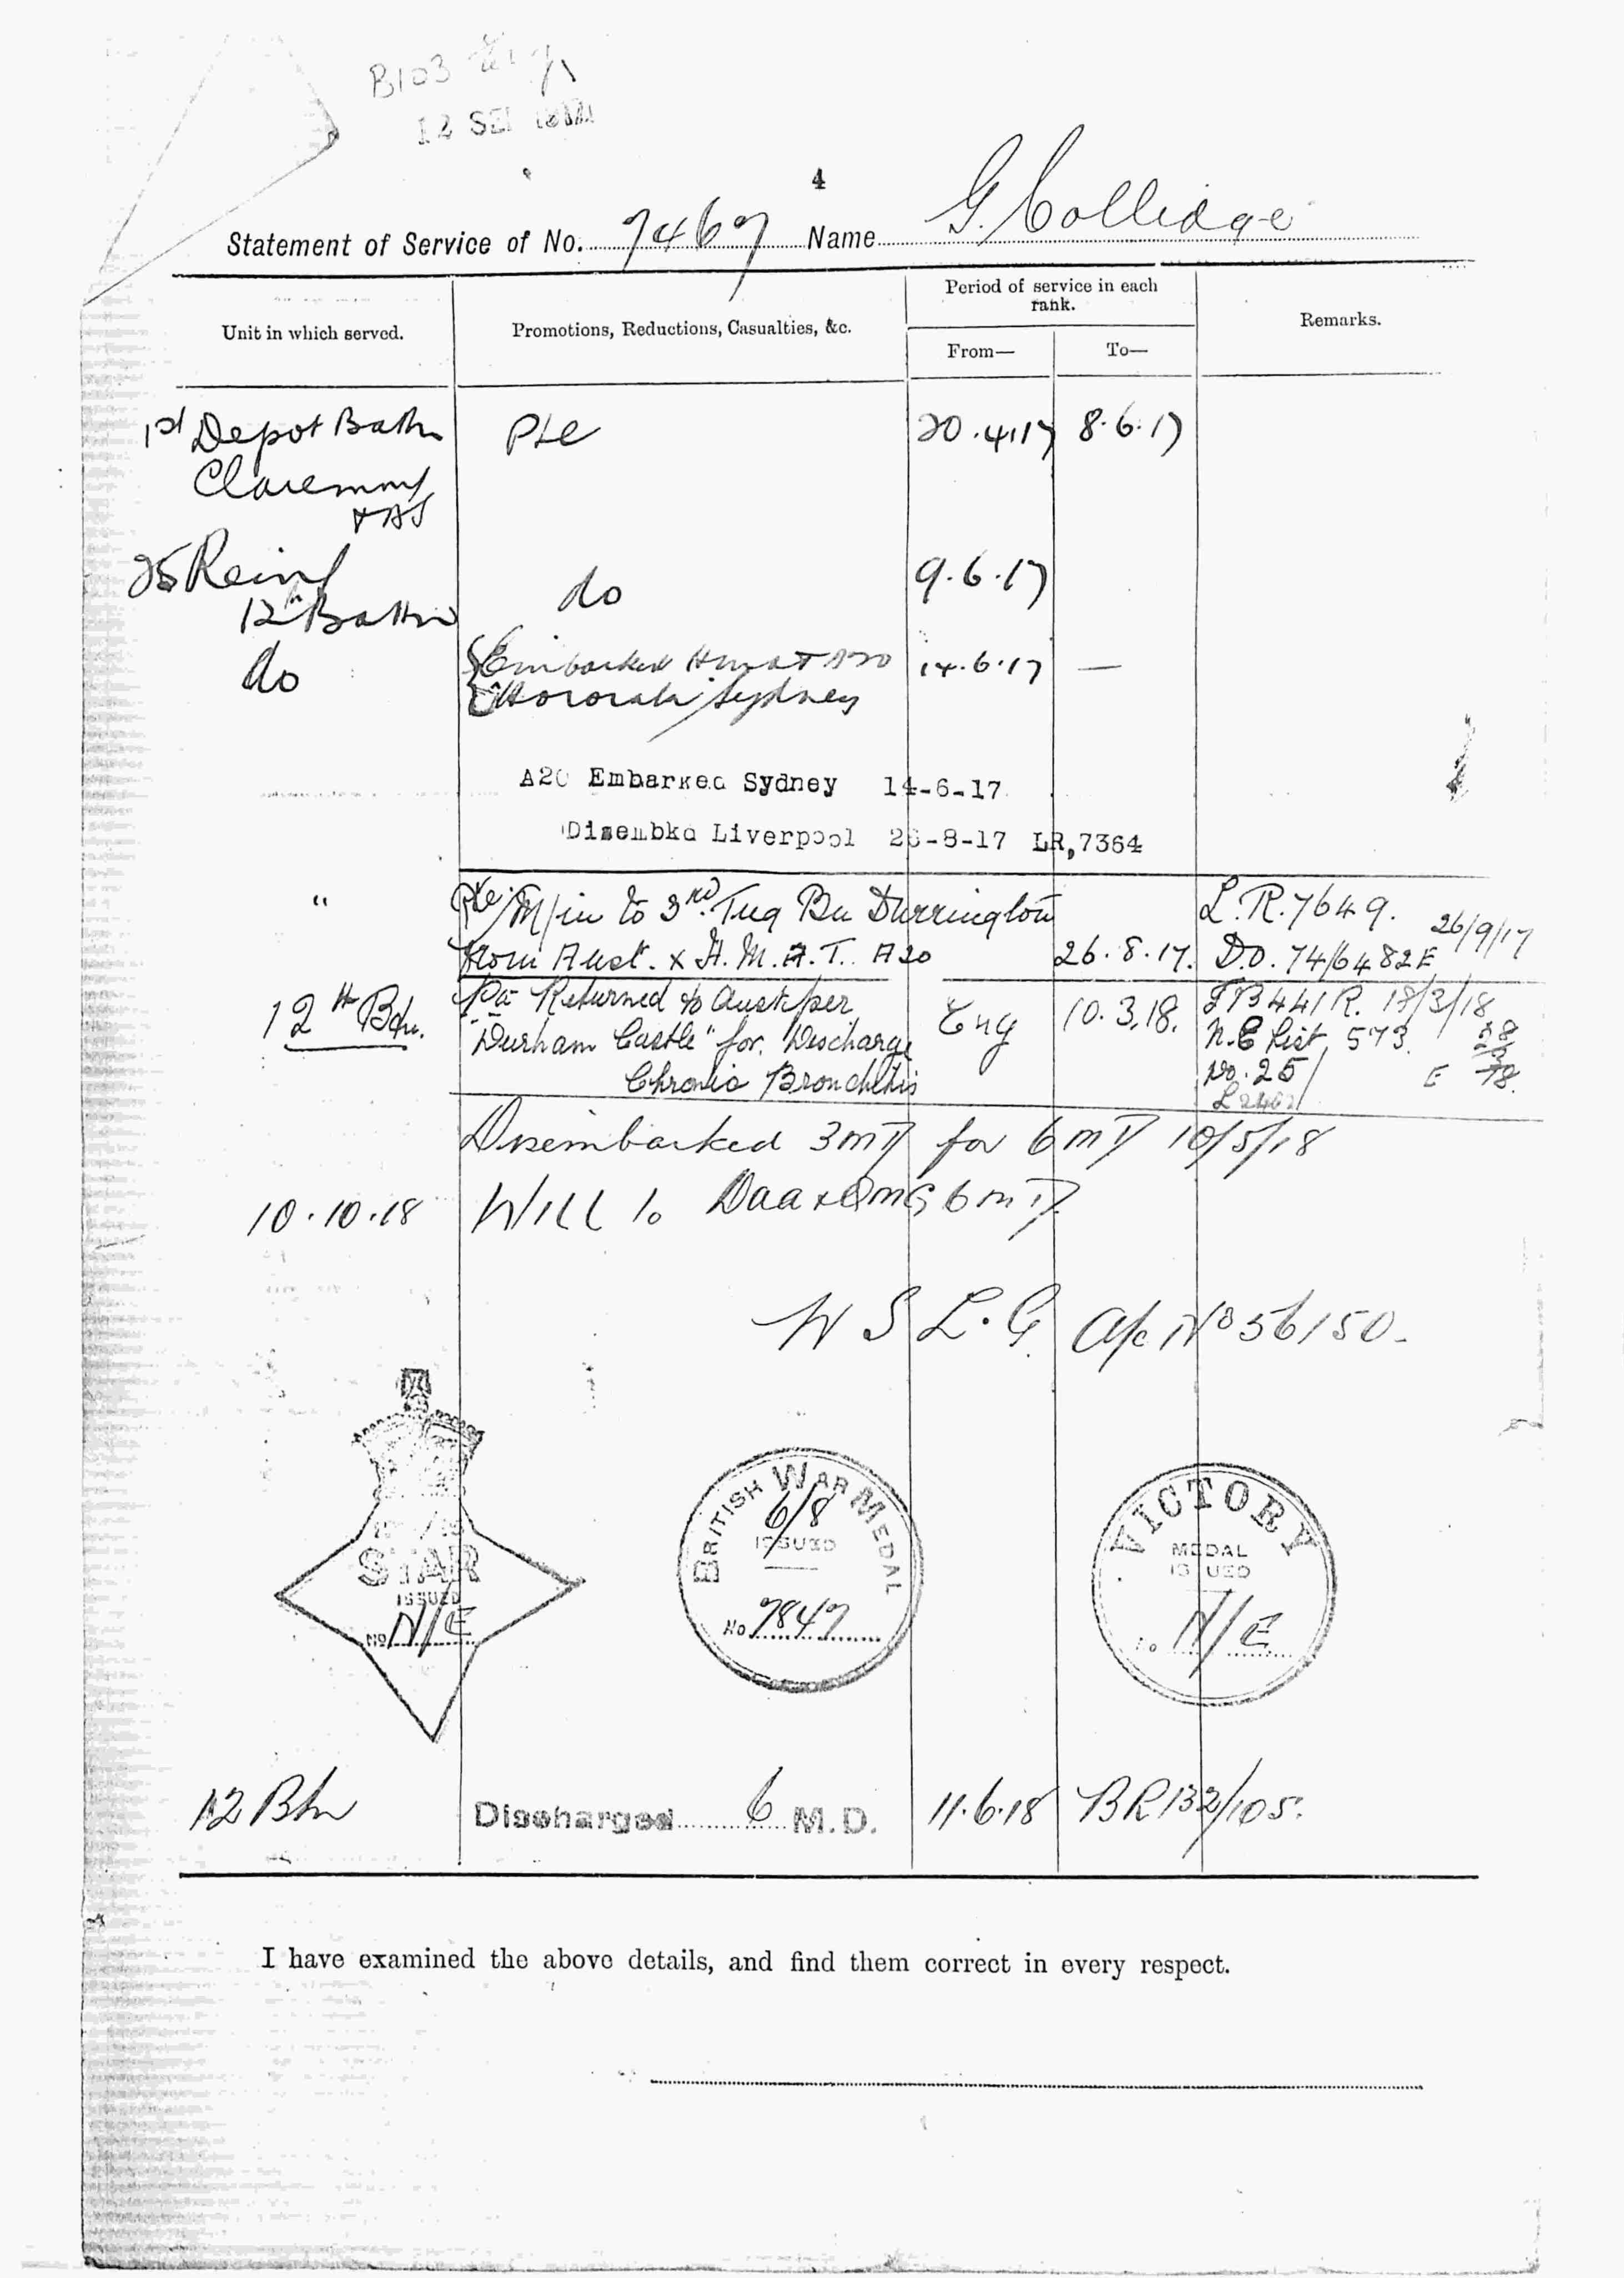 B103
12 SE
4
Statement of Service of No. 7467 Name G. Collidge
Unit in which served. Promotions, Reductions, Casualties, &c. Period of service in each rank. From— To— Remarks.
1st Depot Battn Pte 20.4.17 8.6.17
Claremont
TAS
25 Reinf
12th Battn do 9.6.17
do Embarked HMAT A20 14.6.17 —
Hororata Sydney
A20 Embarked Sydney 14-6-17
Disembkd Liverpool 26-8-17 LR,7364
" Pte M/in to 3rd Tng Bn Durrington L.R. 7649. 26/9/17
from Aust. x H.M.A.T. A20 26.8.17. D.O. 74/6482E
12th Bdn. Pte Returned to Aust. per Eng 10.3.18. 18/3/18
"Durham Castle" for Discharge 573
Chronic Bronchitis No. 25
Disembarked 3 MD for 6 MD 10/5/18
10.10.18 Will to DAA & QMG 6 MD
W S L.G. A/c No 56150-
STAR ISSUED No N/E
BRITISH WAR MEDAL 6/8 ISSUED No 7847
VICTORY MEDAL ISSUED No N/E
12 Btn Discharged 6 M.D. 11.6.18 BR 132/105.
I have examined the above details, and find them correct in every respect.